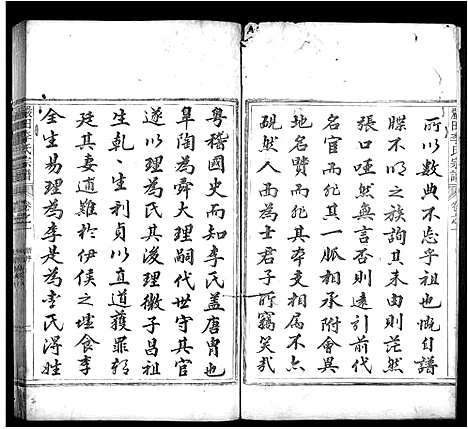 所以數典不忘乎祖也慨自譜
牒不明之族詢其來由則茫然
張口啞然無言否則遠引前代
名宦而非其一脈相承附會異
地名賢而其本支相属不亦
覥然人面為士君子所竊笑哉
粤稽國史而知李氏蓋唐胄也
臯陶為舜大理嗣代世守其官
遂以理為氏其後理徵子昌祖
生乾乾生利貞以直道獲罪朝
廷其妻逃難於伊侯之墟食李
全生易理為李是為李氏得姓
嚴田李氏宗譜
卷之一